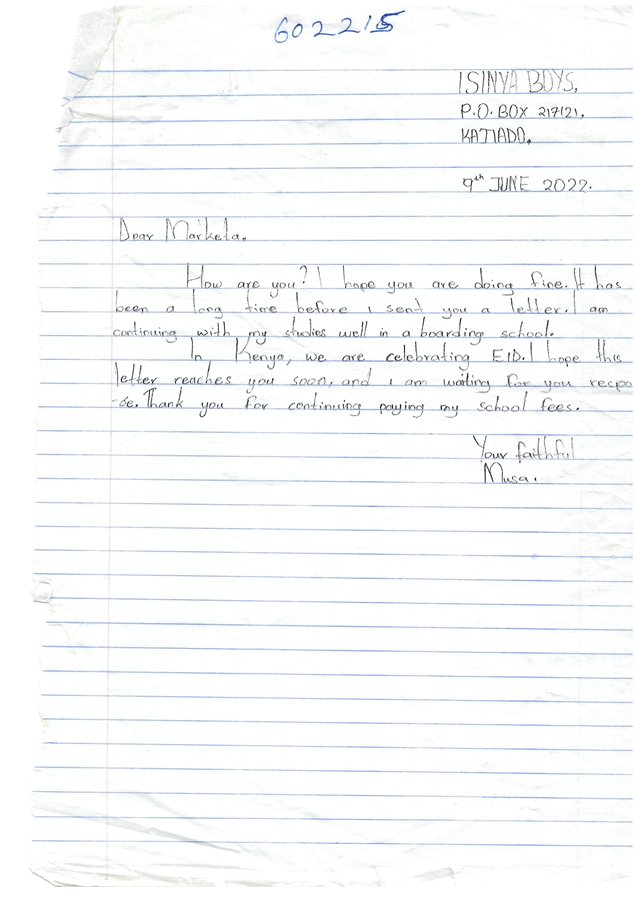 602215
ISINYA BOYS,
P.O. BOX 217121,
KATIADO,
9th JUNE 2022.
Dear Marketa,
How are you? I hope you are doing fine. It has
been a long time before I sent you a letter. I am
continuing with my studies well in a boarding school.
In Kenya, we are celebrating EID. I hope this
letter reaches you soon, and I am waiting for you respo
-se. Thank you for continuing paying my school fees.
Your faithful
Musa.